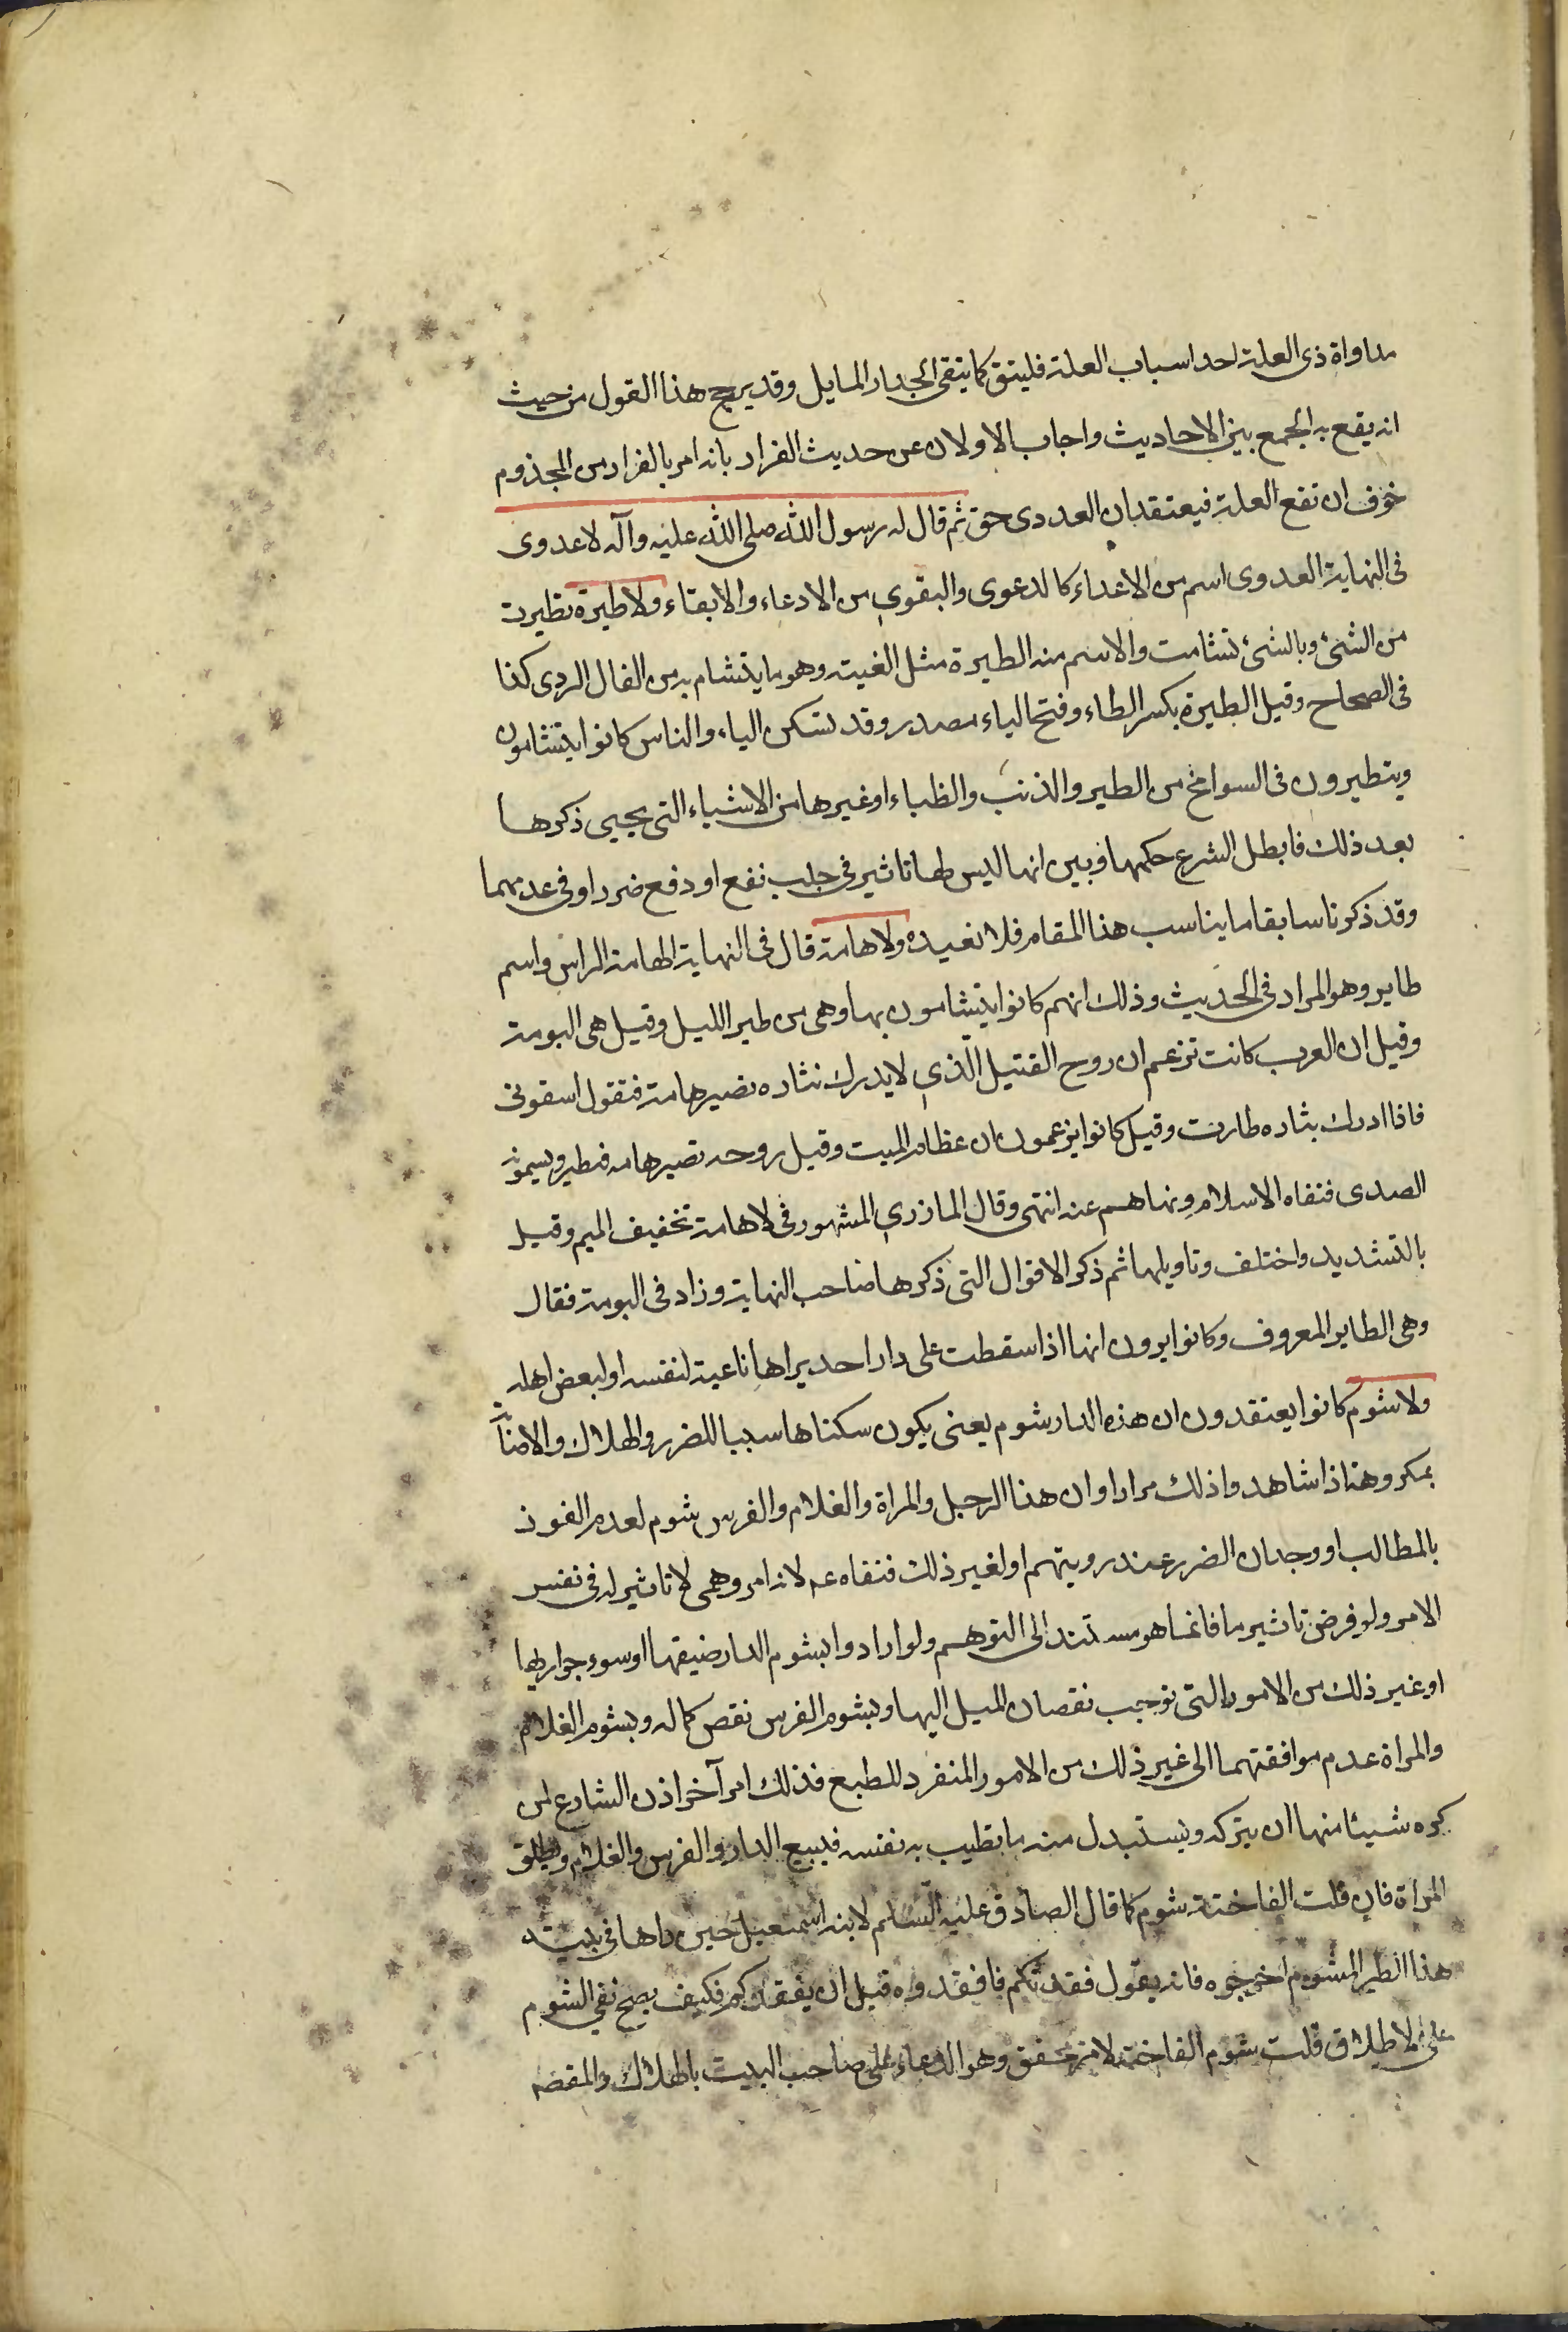 مداواة ذى العلة احد اسباب العلة فليتق كما يتقى الجدار المايل وقد يرجح هذا القول من حيث
انه يقع به الجمع بين الاحاديث واجاب الاولان عن حديث الفرار بانه امر بالفرار من المجذوم
خوف ان تقع العلة فيعتقد ان العدوى حق ثم قال له رسول الله صلى الله عليه وآله لا عدوى
فى النهاية العدوى اسم من الاعداء كالدعوى والبقوى من الادعاء والابقاء ولا طيرة تطيرت
من الشئ وبالشئ تشامت والاسم منه الطيرة مثل الغيبة وهو ما يتشام به من الفال الردى كذا
فى الصحاح وقيل الطيرة بكسر الطاء وفتح الياء مصدر وقد تسكن الياء والناس كانوا يتشامون
ويتطيرون فى السوانح من الطير والذئب والظباء او غيرها من الاشياء التى يجيى ذكرها
بعد ذلك فابطل الشرع حكمها وبين انها ليس لها تاثير فى جلب نفع او دفع ضرر او فى عدمهما
وقد ذكرنا سابقا ما يناسب هذا المقام فلا نعيده ولا هامة قال فى النهاية الهامة الراس واسم
طاير وهو المراد فى الحديث وذلك انهم كانوا يتشامون بها وهى من طير الليل وقيل هى البومة
وقيل ان العرب كانت تزعم ان روح القتيل الذى لا يدرك بثاره تصير هامة فتقول اسقونى
فاذا ادرك بثاره طارت وقيل كانوا يزعمون ان عظام الميت وقيل روحه تصير هامه فتطير ويسمونه
الصدى فنفاه الاسلام ونهاهم عنه انتهى وقال المازرى المشهور فى لا هامة تخفيف الميم وقيل
بالتشديد واختلف وتاويلها ثم ذكر الاقوال التى ذكرها صاحب النهاية وزاد فى البومة فقال
وهى الطاير المعروف وكانوا يرون انها اذا سقطت على دار احد يراها ناعية لنفسه او لبعض اهله
ولا شوم كانوا يعتقدون ان هذه الدار شوم يعنى يكون سكناها سببا للضرر والهلاك والاصابة
بمكروهة اذا شاهدوا ذلك مرارا وان هذا الرجل والمراة والغلام والفرس شوم لعدم الفوز
بالمطالب او وجدان الضرر عند رويتهم او لغير ذلك فنفاه عم لانه امر وهمى لا تاثير له فى نفس
الامر ولو فرض تاثير ما فانما هو مستند الى التوهم ولو ارادوا بشوم الدار ضيقها او سوء جوارها
او غير ذلك من الامور التى توجب نقصان الميل اليها وبشوم الفرس نقص كماله وبشوم الغلام
والمراة عدم موافقتهما الى غير ذلك من الامور المنفرد للطبع فذلك امر آخر اذن الشارع لمن
كره شيئا منها ان يتركه ويستبدل منه ما تطيب به نفسه فيبيع الدار والفرس والغلام ويطلق
المراة فان قلت الفاختة شوم كما قال الصادق عليه السلام لابنه اسمعيل حين راها فى بيته
هذا الطير المشوم اخرجوه فانه يقول فقدتكم فافقدوه قبل ان يفقدكم فكيف يصح نفى الشوم
على الاطلاق قلت شوم الفاختة لامر محقق وهو الدعاء على صاحب البيت بالهلاك والمقصد